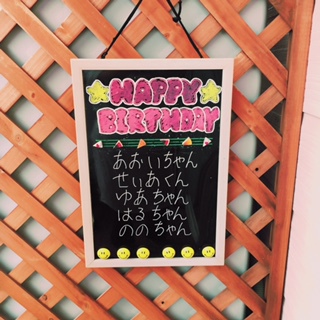 HAPPY
BIRTHDAY
あおいちゃん
せいあくん
ゆあちゃん
はるちゃん
ののちゃん